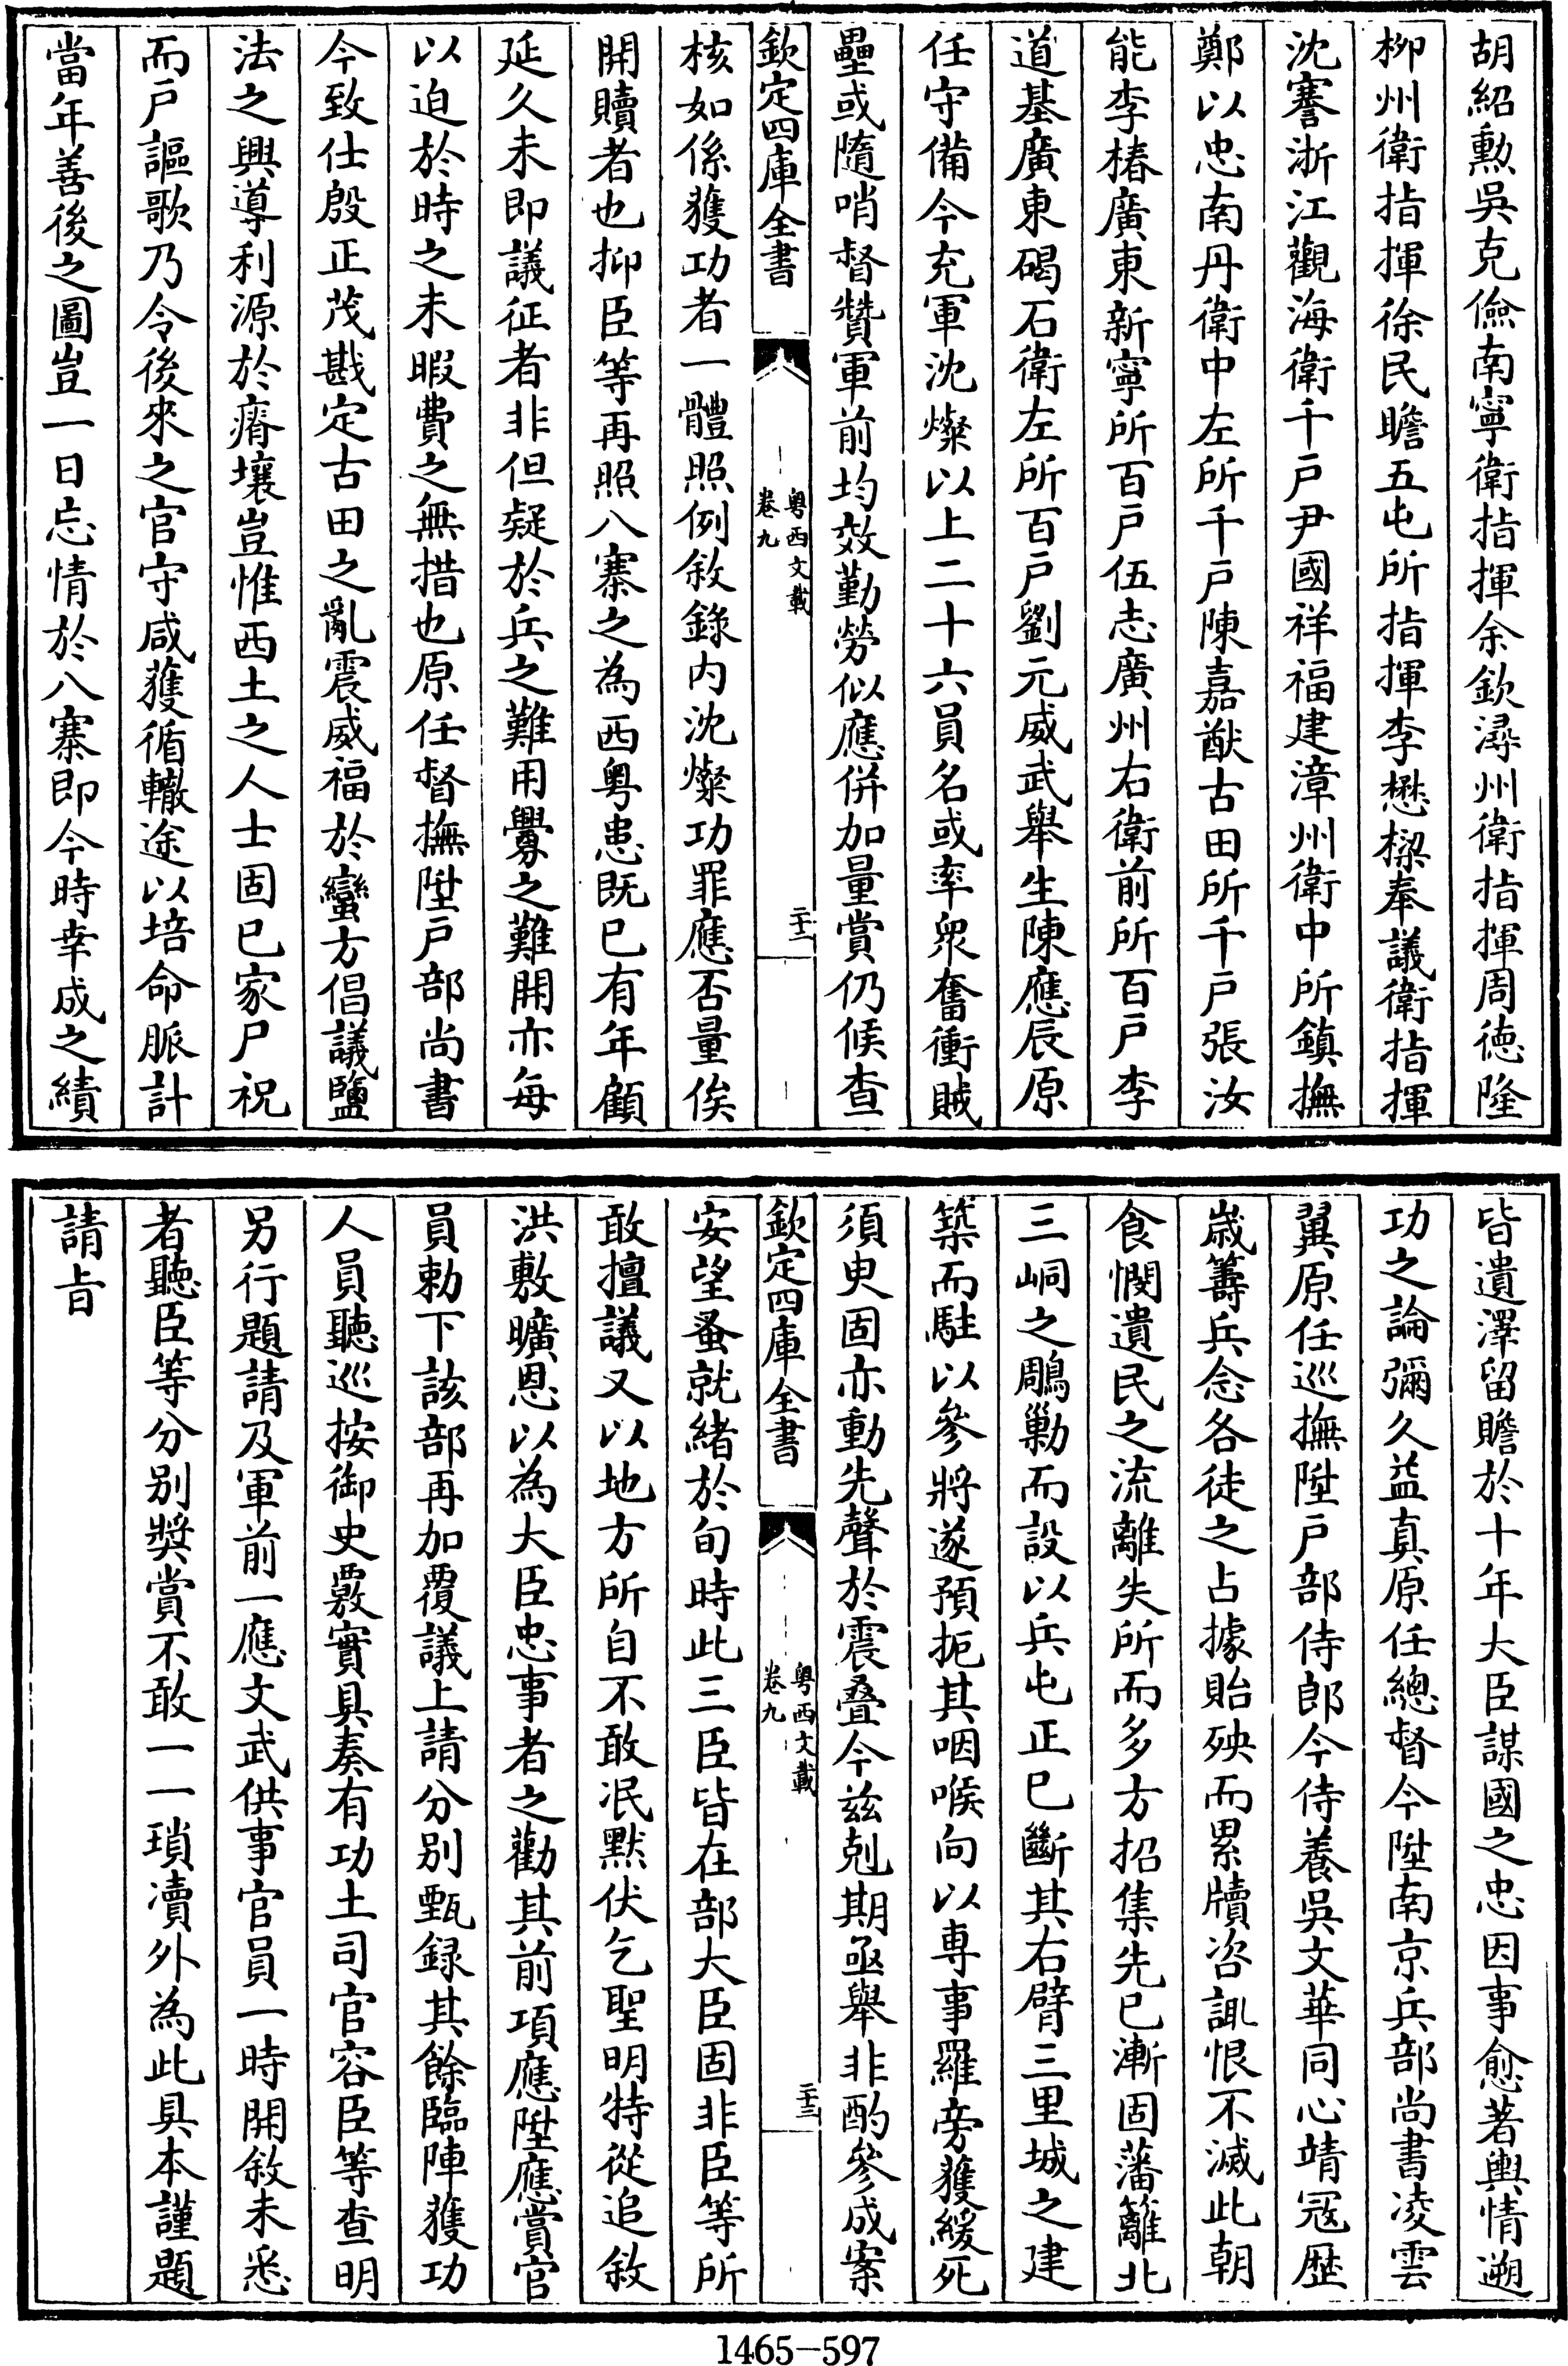 胡紹勲吳克儉南寧衛指揮余欽潯州衛指揮周德隆
栁州衛指揮徐民瞻五屯所指揮李懋樑奉議衛指揮
沈謇浙江觀海衛千戸尹國祥福建漳州衛中所鎮撫
鄭以忠南丹衛中左所千戸陳嘉猷古田所千戸張汝
能李椿廣東新寧所百戸伍志廣州右衛前所百戸李
道基廣東碣石衛左所百戸劉元威武舉生陳應辰原
任守備今充軍沈燦以上二十六員名或率衆奮衝賊
壘或隨哨督贊軍前均效勤勞似應併加量賞仍候查
欽定四庫全書
粤西文載
卷九
二十二
核如係獲功者一體照例敘錄内沈燦功罪應否量俟
開贖者也抑臣等再照八寨之為西粤患既已有年顧
延久未即議征者非但疑於兵之難用釁之難開亦每
以迫於時之未暇費之無措也原任督撫陞戸部尚書
今致仕殷正茂戡定古田之亂震威福於蠻方倡議鹽
法之興導利源於瘠壤豈惟西土之人士固已家尸祝
而戸謳歌乃令後來之官守咸獲循轍途以培命脈計
當年善後之圖豈一日忘情於八寨即今時幸成之績
皆遺澤留贍於十年大臣謀國之忠因事愈著輿情遡
功之論彌久益真原任總督今陞南京兵部尚書凌雲
翼原任巡撫陞戸部侍郎今侍養吳文華同心靖冦歴
嵗籌兵念各徒之占據貽殃而累牘咨諏恨不滅此朝
食憫遺民之流離失所而多方招集先已漸固藩籬北
三峒之鵰巢而設以兵屯正已斷其右臂三里城之建
築而駐以參將遂預扼其咽喉向以専事羅旁獲緩死
須臾固亦動先聲於震叠今兹剋期亟舉非酌參成案
欽定四庫全書
粤西文載
卷九
二十三
安望蚤就緒於旬時此三臣皆在部大臣固非臣等所
敢擅議又以地方所自不敢泯黙伏乞聖明特從追敘
洪敷曠恩以為大臣忠事者之勸其前項應陞應賞官
員勅下該部再加覆議上請分别甄録其餘臨陣獲功
人員聽巡按御史覈實具奏有功土司官容臣等查明
另行題請及軍前一應文武供事官員一時開敘未悉
者聽臣等分别奬賞不敢一一瑣凟外為此具本謹題
請旨
1465-597